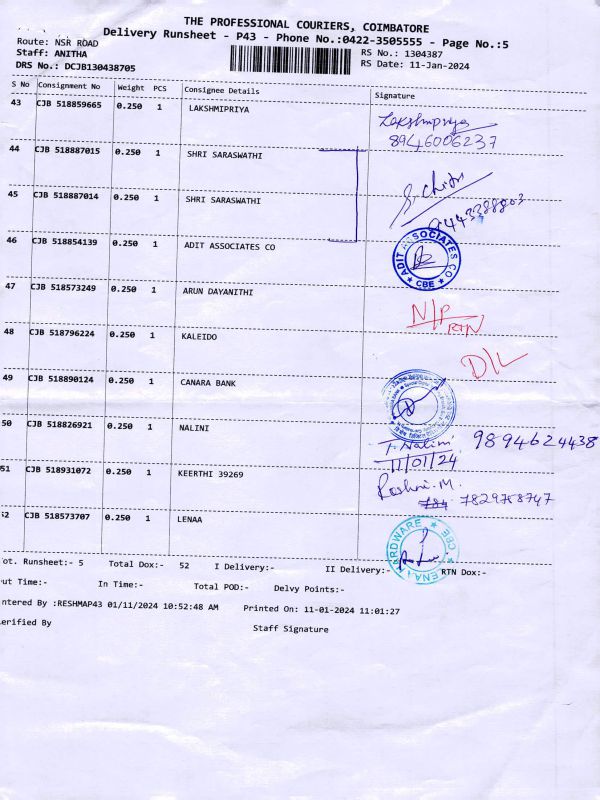 THE PROFESSIONAL COURIERS, COIMBATORE
Delivery Runsheet - P43 - Phone No.:0422-3505555 - Page No.:5
Route: NSR ROAD RS No.: 1304387
Staff: ANITHA RS Date: 11-Jan-2024
DRS No.: DCJB130438705
S No Consignment No Weight PCS Consignee Details Signature
43 CJB 518859665 0.250 1 LAKSHMIPRIYA Lakshmipriya
8946006237
44 CJB 518887015 0.250 1 SHRI SARASWATHI
45 CJB 518887014 0.250 1 SHRI SARASWATHI
46 CJB 518854139 0.250 1 ADIT ASSOCIATES CO ADIT ASSOCIATES CO CBE
47 CJB 518573249 0.250 1 ARUN DAYANITHI N/P
RTN
48 CJB 518796224 0.250 1 KALEIDO D/L
49 CJB 518890124 0.250 1 CANARA BANK
50 CJB 518826921 0.250 1 NALINI T. Nalini 9894624438
11/01/24
51 CJB 518931072 0.250 1 KEERTHI 39269 Roshni. M.
7829758747
52 CJB 518573707 0.250 1 LENAA LENAA HARDWARE CBE
ot. Runsheet:- 5 Total Dox:- 52 I Delivery:- II Delivery:- RTN Dox:-
ut Time:- In Time:- Total POD:- Delvy Points:-
ntered By :RESHMAP43 01/11/2024 10:52:48 AM Printed On: 11-01-2024 11:01:27
erified By Staff Signature